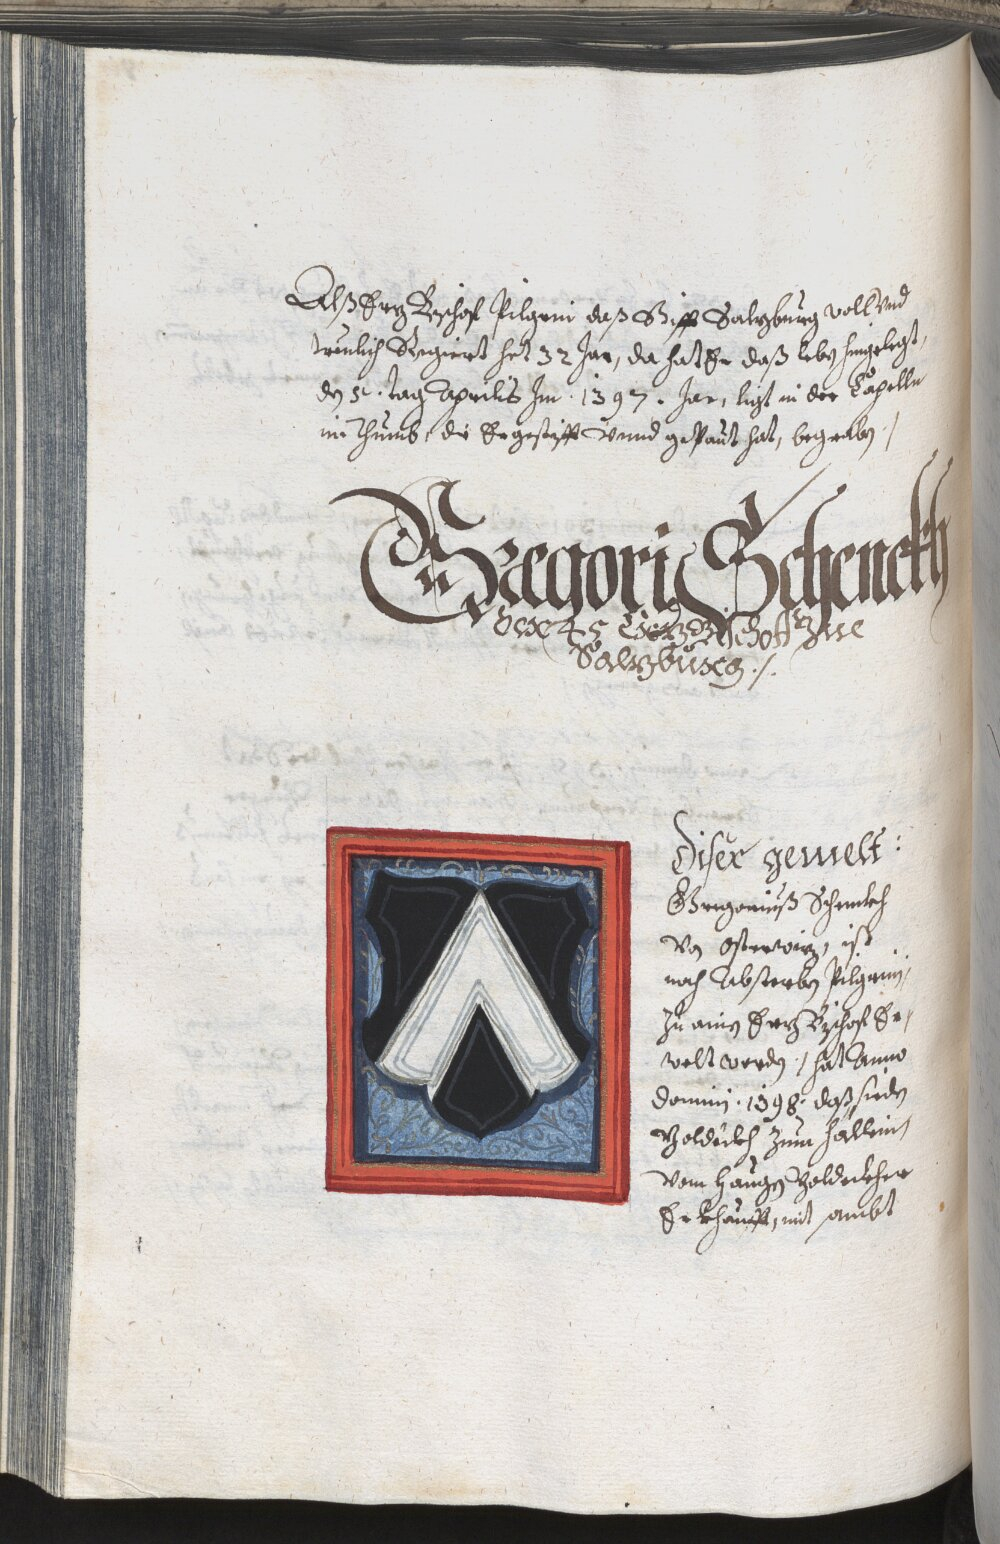 Alß Ertz Bischof Pilgrin daß Stifft Saltzburg woll Vnd
treulich Regiert het 32 Jar, da hat Er daß leben hingelegt,
den 5. tag Aprilis Im .1397. Jar, ligt in der Capelln
im Thumb, die Er gestifft Vnnd gepaut hat, begraben ./
Gregori Schenckh
der 45 Ertzbischoff zue
Saltzburg ./.
Diser gemelt:
Gregoriuß Schenckh
Von Osterwitz, ist
nach Absterben Pilgrin,
Zu ainen Ertz Bischof Er,
welt worden ./ hat Anno
Domini .1398. daß sieden
Goldeckh Zum Hällein,
Vom Haugen Goldeckher
Erkhaufft, mit sambt